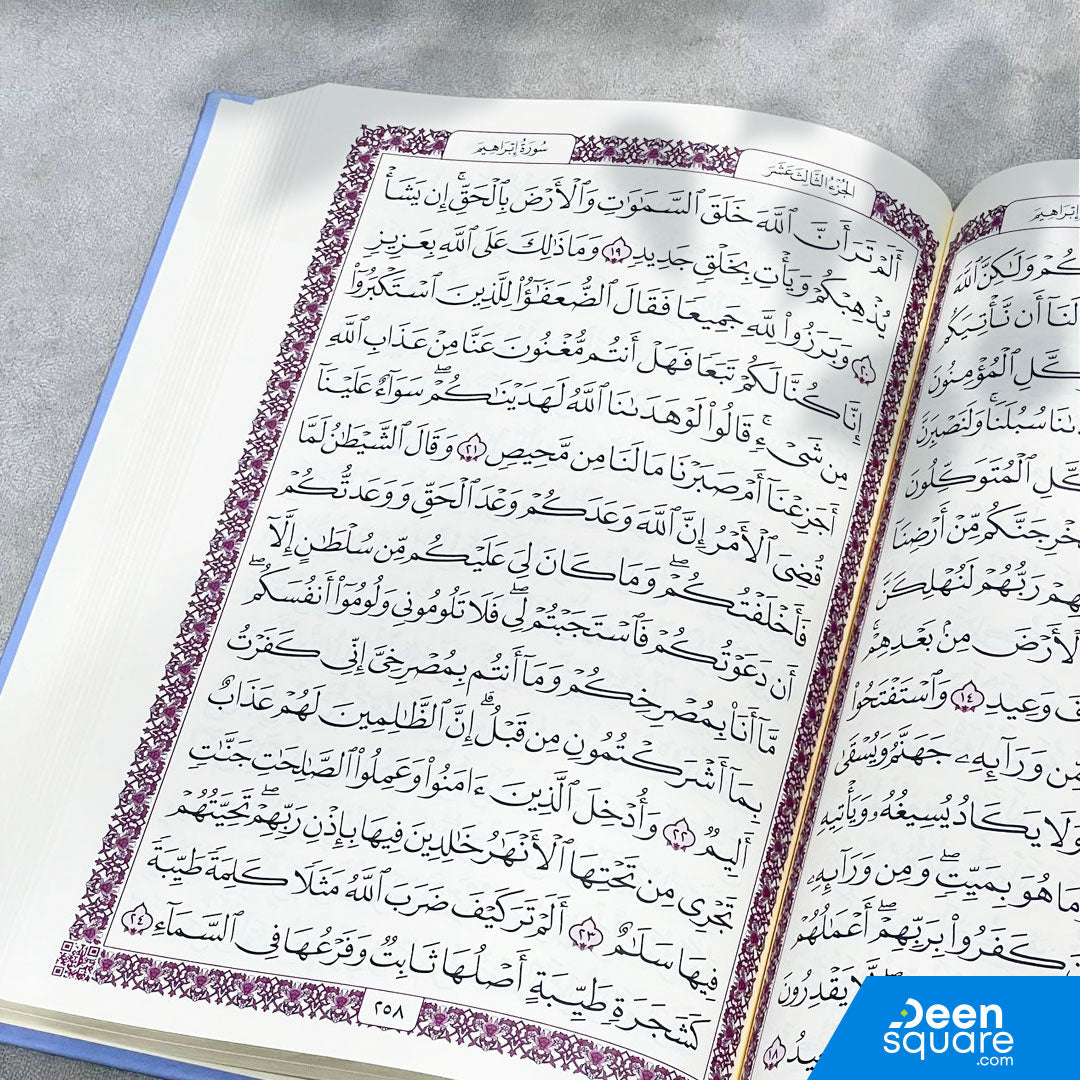 سُورَةُ إِبْرَاهِيمَ
الجُزْءُ الثَّالِثَ عَشَرَ
أَلَمْ تَرَ أَنَّ ٱللَّهَ خَلَقَ ٱلسَّمَٰوَٰتِ وَٱلْأَرْضَ بِٱلْحَقِّۚ إِن يَشَأْ
يُذْهِبْكُمْ وَيَأْتِ بِخَلْقٍ جَدِيدٍ ١٩ وَمَا ذَٰلِكَ عَلَى ٱللَّهِ بِعَزِيزٍ
٢٠ وَبَرَزُوا۟ لِلَّهِ جَمِيعًا فَقَالَ ٱلضُّعَفَٰٓؤُا۟ لِلَّذِينَ ٱسْتَكْبَرُوٓا۟
إِنَّا كُنَّا لَكُمْ تَبَعًا فَهَلْ أَنتُم مُّغْنُونَ عَنَّا مِنْ عَذَابِ ٱللَّهِ
مِن شَىْءٍۚ قَالُوا۟ لَوْ هَدَىٰنَا ٱللَّهُ لَهَدَيْنَٰكُمْۖ سَوَآءٌ عَلَيْنَآ
أَجَزِعْنَآ أَمْ صَبَرْنَا مَا لَنَا مِن مَّحِيصٍ ٢١ وَقَالَ ٱلشَّيْطَٰنُ لَمَّا
قُضِىَ ٱلْأَمْرُ إِنَّ ٱللَّهَ وَعَدَكُمْ وَعْدَ ٱلْحَقِّ وَوَعَدتُّكُمْ
فَأَخْلَفْتُكُمْۖ وَمَا كَانَ لِىَ عَلَيْكُم مِّن سُلْطَٰنٍ إِلَّآ
أَن دَعَوْتُكُمْ فَٱسْتَجَبْتُمْ لِىۖ فَلَا تَلُومُونِى وَلُومُوٓا۟ أَنفُسَكُمۖ
مَّآ أَنَا۠ بِمُصْرِخِكُمْ وَمَآ أَنتُم بِمُصْرِخِىَّۖ إِنِّى كَفَرْتُ
بِمَآ أَشْرَكْتُمُونِ مِن قَبْلُۗ إِنَّ ٱلظَّٰلِمِينَ لَهُمْ عَذَابٌ
أَلِيمٌ ٢٢ وَأُدْخِلَ ٱلَّذِينَ ءَامَنُوا۟ وَعَمِلُوا۟ ٱلصَّٰلِحَٰتِ جَنَّٰتٍ
تَجْرِى مِن تَحْتِهَا ٱلْأَنْهَٰرُ خَٰلِدِينَ فِيهَا بِإِذْنِ رَبِّهِمْۖ تَحِيَّتُهُمْ
فِيهَا سَلَٰمٌ ٢٣ أَلَمْ تَرَ كَيْفَ ضَرَبَ ٱللَّهُ مَثَلًا كَلِمَةً طَيِّبَةً
كَشَجَرَةٍ طَيِّبَةٍ أَصْلُهَا ثَابِتٌ وَفَرْعُهَا فِى ٱلسَّمَآءِ ٢٤
٢٥٨
إِبْرَاهِيمَ
وَلَٰكِنَّ ٱللَّهَ
لَنَآ أَن نَّأْتِيَكُم
ٱلْمُؤْمِنُونَ
سُبُلَنَاۚ وَلَنَصْبِرَنَّ
ٱلْمُتَوَكِّلُونَ
مِّنْ أَرْضِنَآ
رَبُّهُمْ لَنُهْلِكَنَّ
ٱلْأَرْضَ مِنۢ بَعْدِهِمْۚ
وَعِيدِ ١٤ وَٱسْتَفْتَحُوا۟
مِّن وَرَآئِهِۦ جَهَنَّمُ وَيُسْقَىٰ
وَلَا يَكَادُ يُسِيغُهُۥ وَيَأْتِيهِ
هُوَ بِمَيِّتٍۖ وَمِن وَرَآئِهِۦ
كَفَرُوا۟ بِرَبِّهِمْۖ أَعْمَٰلُهُمْ
لَّا يَقْدِرُونَ
١٨
Deen
square
.com